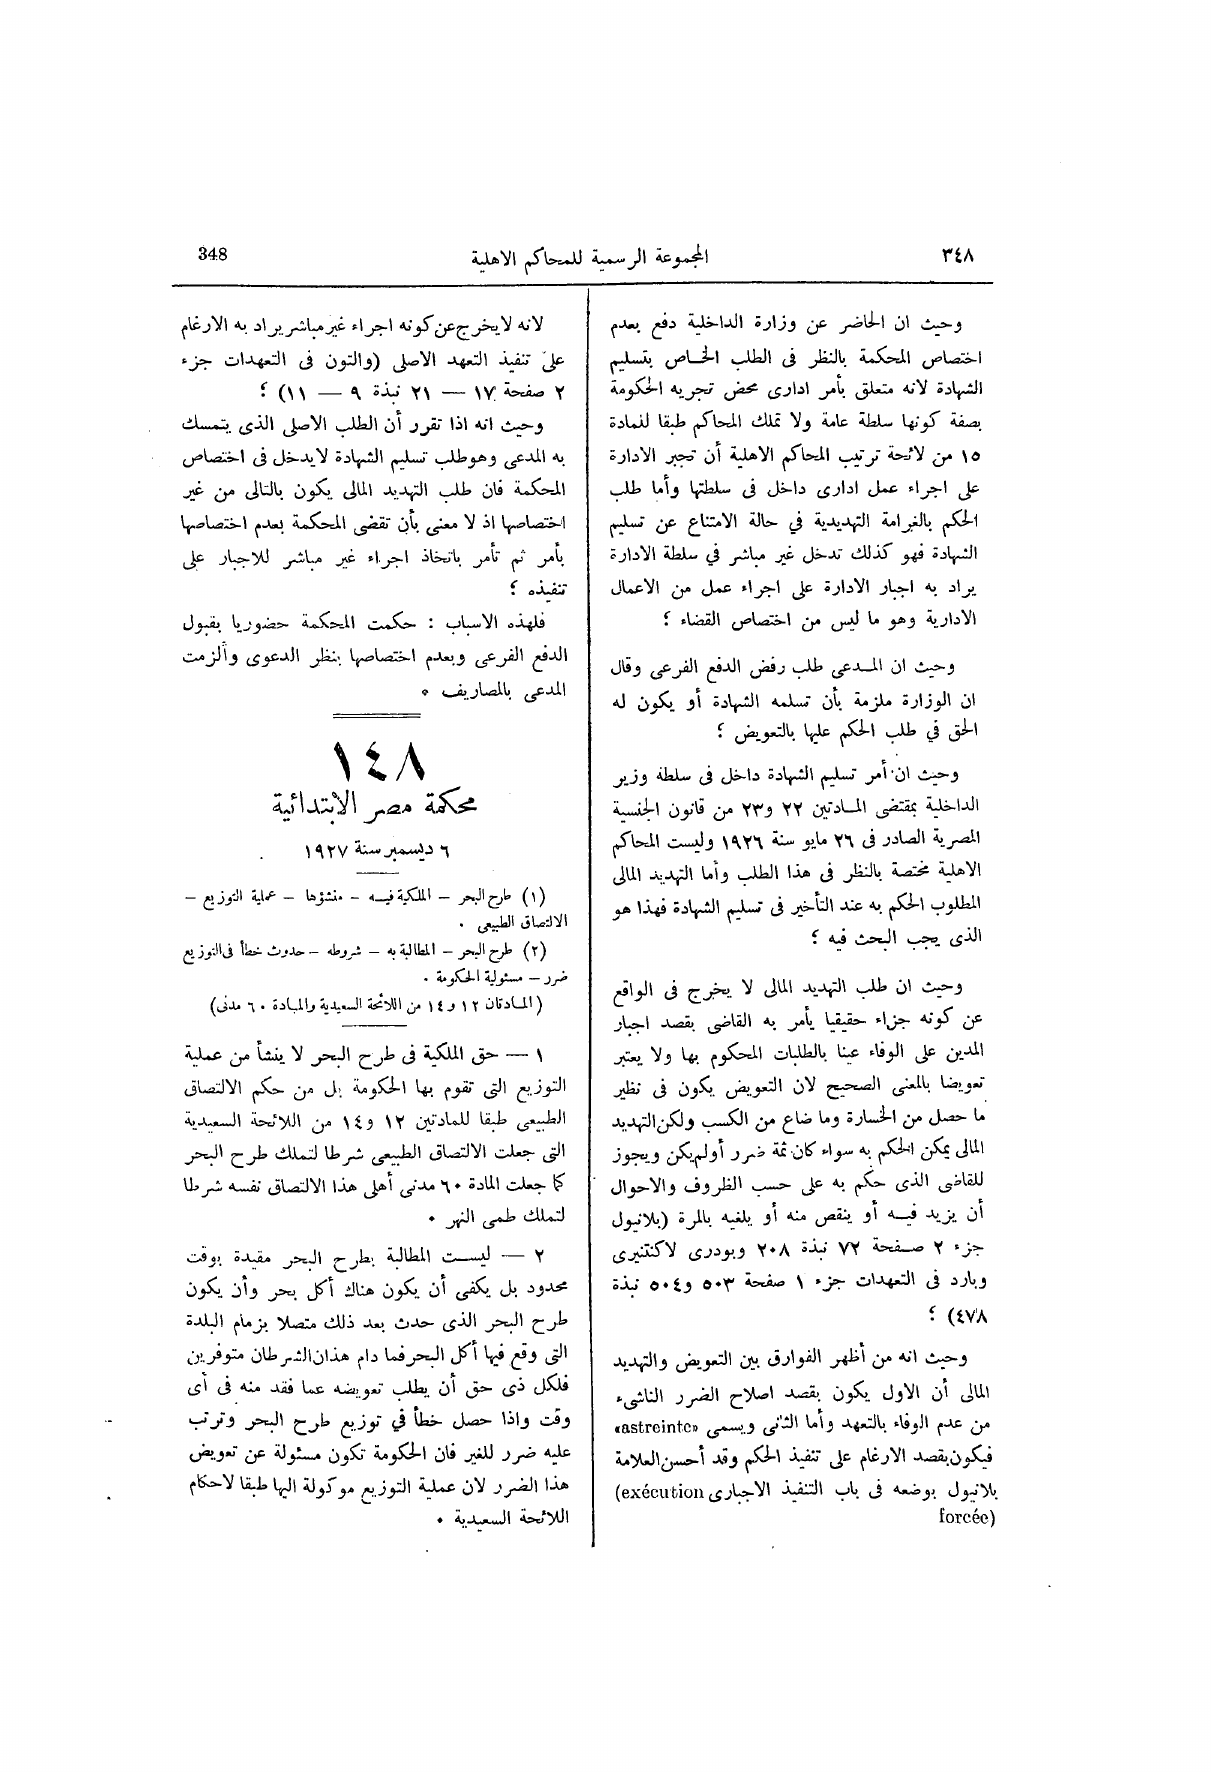 ٣٤٨ المجموعة الرسمية للمحاكم الاهلية 348
وحيث ان الحاضر عن وزارة الداخلية دفع بعدم
اختصاص المحكمة بالنظر فى الطلب الخاص بتسليم
الشهادة لانه متعلق بأمر ادارى محض تجريه الحكومة
بصفة كونها سلطة عامة ولا تملك المحاكم طبقا للمادة
١٥ من لائحة ترتيب المحاكم الاهلية أن تجبر الادارة
على اجراء عمل ادارى داخل فى سلطتها وأما طلب
الحكم بالغرامة التهديدية في حالة الامتناع عن تسليم
الشهادة فهو كذلك تدخل غير مباشر في سلطة الادارة
يراد به اجبار الادارة على اجراء عمل من الاعمال
الادارية وهو ما ليس من اختصاص القضاء ؛
وحيث ان المدعى طلب رفض الدفع الفرعى وقال
ان الوزارة ملزمة بأن تسلمه الشهادة أو يكون له
الحق في طلب الحكم عليها بالتعويض ؛
وحيث ان أمر تسليم الشهادة داخل فى سلطة وزير
الداخلية بمقتضى المادتين ٢٢ و٢٣ من قانون الجنسية
المصرية الصادر فى ٢٦ مايو سنة ١٩٢٦ وليست المحاكم
الاهلية مختصة بالنظر فى هذا الطلب وأما التهديد المالى
المطلوب الحكم به عند التأخير فى تسليم الشهادة فهذا هو
الذى يجب البحث فيه ؛
وحيث ان طلب التهديد المالى لا يخرج فى الواقع
عن كونه جزاء حقيقيا يأمر به القاضى بقصد اجبار
المدين على الوفاء عينا بالطلبات المحكوم بها ولا يعتبر
تعويضا بالمعنى الصحيح لان التعويض يكون فى نظير
ما حصل من الخسارة وما ضاع من الكسب ولكن التهديد
المالى يمكن الحكم به سواء كان ثمة ضرر أولم يكن ويجوز
للقاضى الذى حكم به على حسب الظروف والاحوال
أن يزيد فيه أو ينقص منه أو يلغيه بالمرة (بلانيول
جزء ٢ صفحة ٧٢ نبذة ٢٠٨ وبودرى لاكنتنيرى
وبارد فى التعهدات جزء ١ صفحة ٥٠٣ و٥٠٤ نبذة
٤٧٨) ؛
وحيث انه من أظهر الفوارق بين التعويض والتهديد
المالى أن الاول يكون بقصد اصلاح الضرر الناشىء
من عدم الوفاء بالتعهد وأما الثانى ويسمى «astreinte»
فيكون بقصد الارغام على تنفيذ الحكم وقد أحسن العلامة
بلانيول بوضعه فى باب التنفيذ الاجبارى (exécution
forcée)
لانه لا يخرج عن كونه اجراء غير مباشر يراد به الارغام
على تنفيذ التعهد الاصلى (والتون فى التعهدات جزء
٢ صفحة ١٧ — ٢١ نبذة ٩ — ١١) ؛
وحيث انه اذا تقرر أن الطلب الاصلى الذى يتمسك
به المدعى وهو طلب تسليم الشهادة لا يدخل فى اختصاص
المحكمة فان طلب التهديد المالى يكون بالتالى من غير
اختصاصها اذ لا معنى بأن تقضى المحكمة بعدم اختصاصها
بأمر ثم تأمر باتخاذ اجراء غير مباشر للاجبار على
تنفيذه ؛
فلهذه الاسباب : حكمت المحكمة حضوريا بقبول
الدفع الفرعى وبعدم اختصاصها بنظر الدعوى وألزمت
المدعى بالمصاريف .
١٤٨
محكمة مصر الابتدائية
٦ ديسمبر سنة ١٩٢٧
(١) طرح البحر — الملكية فيه — منشؤها — عملية التوزيع —
الالتصاق الطبيعى .
(٢) طرح البحر — المطالبة به — شروطه — حدوث خطأ فى التوزيع
ضرر — مسئولية الحكومة .
(المادتان ١٢ و١٤ من اللائحة السعيدية والمادة ٦٠ مدنى)
١ — حق الملكية فى طرح البحر لا ينشأ من عملية
التوزيع التى تقوم بها الحكومة بل من حكم الالتصاق
الطبيعى طبقا للمادتين ١٢ و١٤ من اللائحة السعيدية
التى جعلت الالتصاق الطبيعى شرطا لتملك طرح البحر
كما جعلت المادة ٦٠ مدنى أهلى هذا الالتصاق نفسه شرطا
لتملك طمى النهر .
٢ — ليست المطالبة بطرح البحر مقيدة بوقت
محدود بل يكفى أن يكون هناك أكل بحر وأن يكون
طرح البحر الذى حدث بعد ذلك متصلا بزمام البلدة
التى وقع فيها أكل البحر فما دام هذان الشرطان متوفرين
فلكل ذى حق أن يطلب تعويضه عما فقد منه فى أى
وقت واذا حصل خطأ في توزيع طرح البحر وترتب
عليه ضرر للغير فان الحكومة تكون مسئولة عن تعويض
هذا الضرر لان عملية التوزيع موكولة اليها طبقا لاحكام
اللائحة السعيدية .